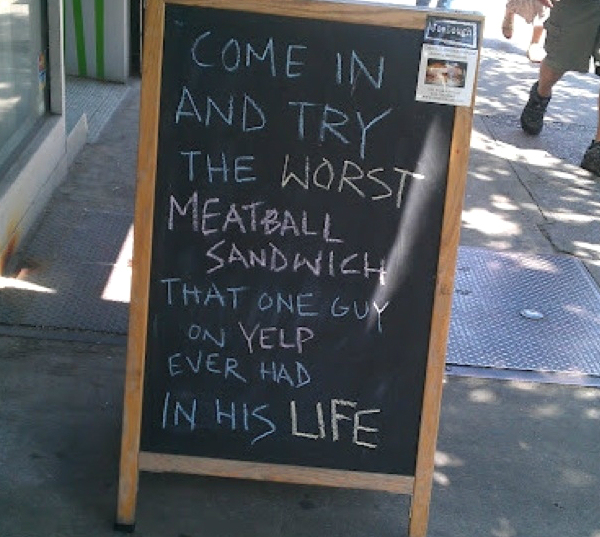 JoeDough
COME IN
AND TRY
THE WORST
MEATBALL
SANDWICH
THAT ONE GUY
ON YELP
EVER HAD
IN HIS LIFE